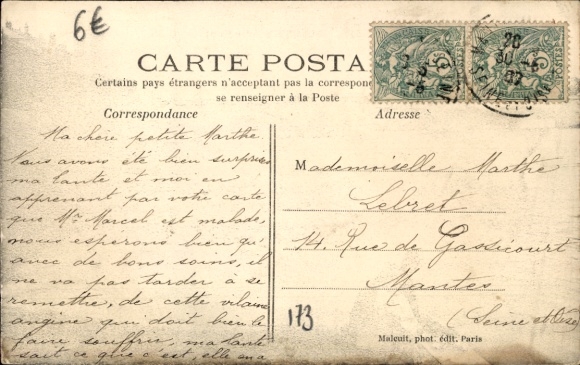 6€
CARTE POSTA
Certains pays étrangers n'acceptant pas la correspon
se renseigner à la Poste
Correspondance
Adresse
Ma chère petite Marthe
Nous avons été bien surprises
ma tante et moi en
apprenant par votre carte
que Mr Marcel est malade,
nous espérons bien qu'
avec de bons soins, il
ne va pas tarder à se
remettre, de cette vilaine
angine qui doit bien le
faire souffrir, ma tante
sait ce que c'est, elle en a
Mademoiselle Marthe
Lebret
14. Rue de Gassicourt
Mantes
(Seine et Oise)
173
Malcuit, phot. édit. Paris